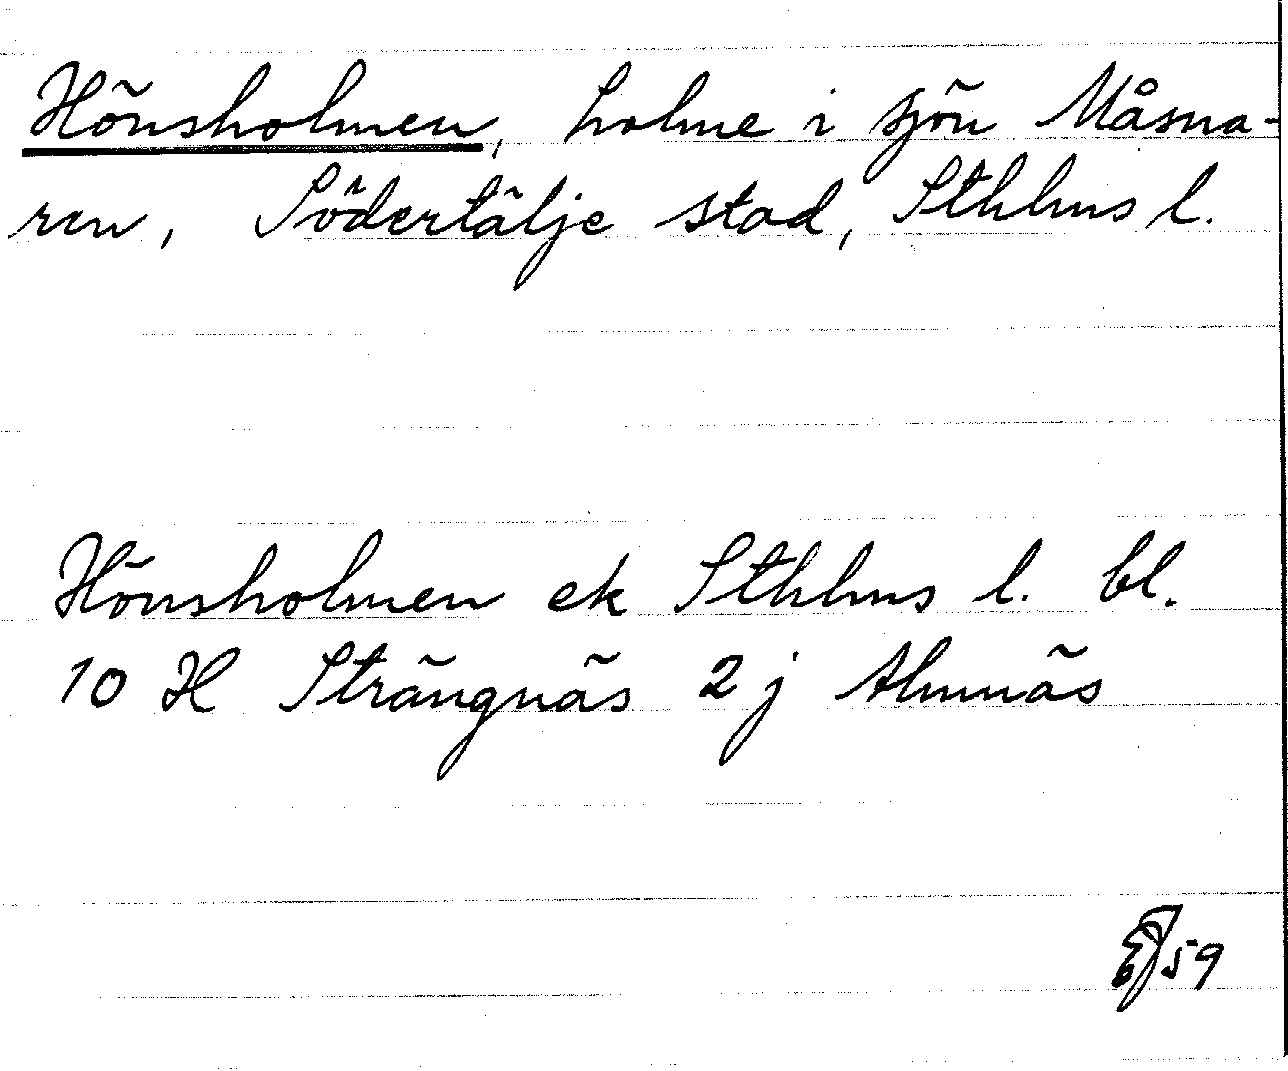 Hönsholmen, holme i sjön Måsna-
ren, Södertälje stad, Sthlms l.
Hönsholmen ek Sthlms l. bl.
10 H Strängnäs 2 j Almnäs
EJ 59